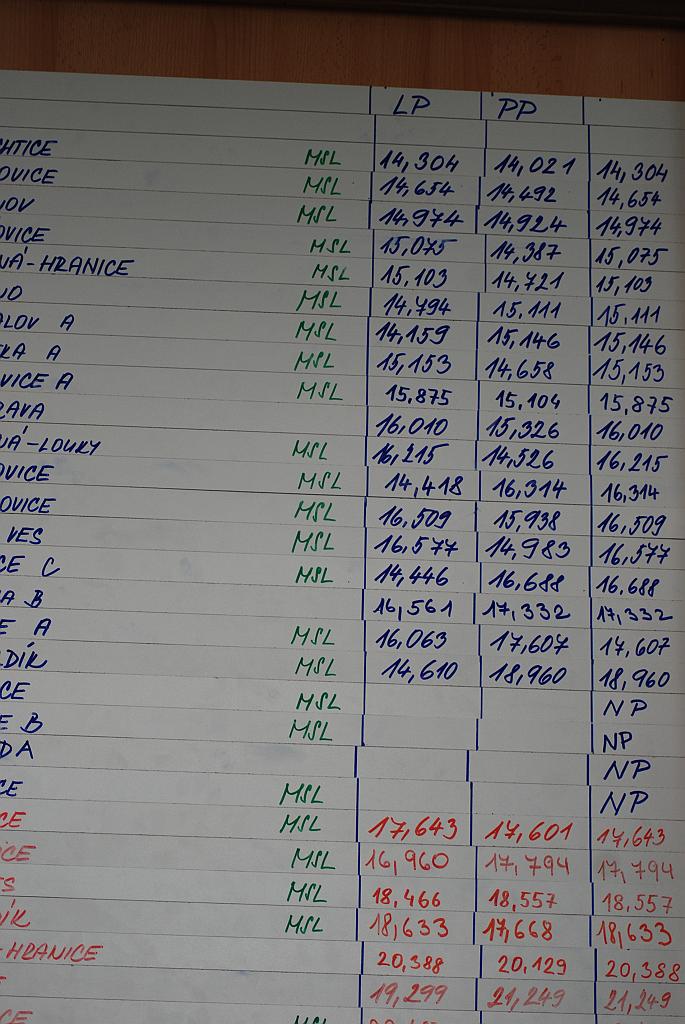 LP PP
CHTICE MSL 14,304 14,021 14,304
OVICE MSL 14,654 14,492 14,654
NOV MSL 14,974 14,924 14,974
OVICE MSL 15,075 14,387 15,075
NÁ-HRANICE MSL 15,103 14,721 15,103
NO MSL 14,794 15,111 15,111
ALOV A MSL 14,159 15,146 15,146
KA A MSL 15,153 14,658 15,153
VICE A MSL 15,875 15,104 15,875
RAVA 16,010 15,326 16,010
NÁ-LOUKY MSL 16,215 14,526 16,215
OVICE MSL 14,418 16,314 16,314
OVICE MSL 16,509 15,938 16,509
VES MSL 16,577 14,983 16,577
CE C MSL 14,446 16,688 16,688
A B 16,561 17,332 17,332
E A MSL 16,063 17,607 17,607
LDÍK MSL 14,610 18,960 18,960
CE MSL NP
E B MSL NP
DA NP
CE MSL NP
CE MSL 17,643 17,601 17,643
ICE MSL 16,960 17,794 17,794
ES MSL 18,466 18,557 18,557
DÍK MSL 18,633 17,668 18,633
-HRANICE 20,388 20,129 20,388
19,299 21,249 21,249
CE MSL